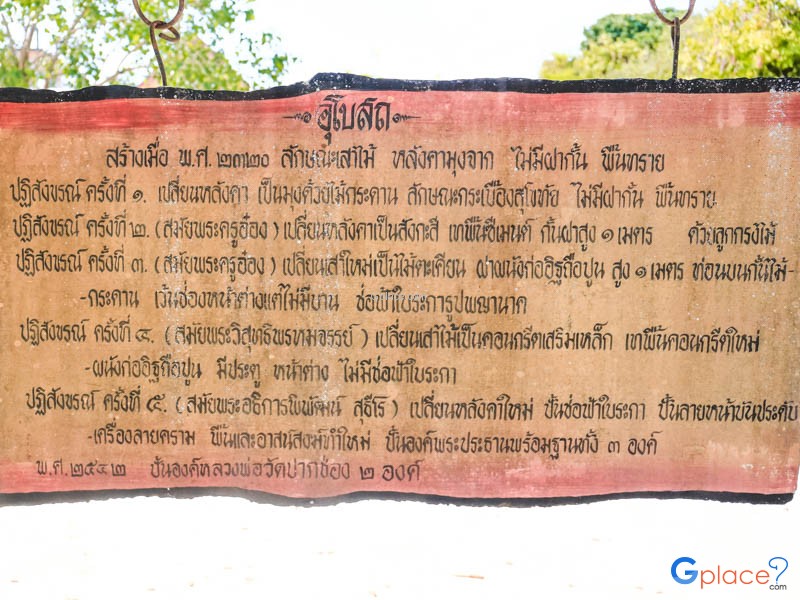 อุโบสถ
สร้างเมื่อ พ.ศ. ๒๓๒๐ ลักษณะเสาไม้ หลังคามุงจาก ไม่มีฝากั้น พื้นทราย
ปฏิสังขรณ์ ครั้งที่ ๑. เปลี่ยนหลังคา เป็นมุงด้วยไม้กระดาน ลักษณะกระเบื้องสุโขทัย ไม่มีฝากั้น พื้นทราย
ปฏิสังขรณ์ ครั้งที่ ๒. (สมัยพระครูอ๋อง) เปลี่ยนหลังคาเป็นสังกะสี เทพื้นซีเมนต์ กั้นฝาสูง ๑ เมตร ด้วยลูกกรงไม้
ปฏิสังขรณ์ ครั้งที่ ๓. (สมัยพระครูอ๋อง) เปลี่ยนเสาใหม่เป็นไม้ตะเคียน ฝาผนังก่ออิฐถือปูน สูง ๑ เมตร ท่อนบนกั้นไม้-
-กระดาน เว้นช่องหน้าต่างแต่ไม่มีบาน ช่อฟ้าใบระการูปพญานาค
ปฏิสังขรณ์ ครั้งที่ ๔. (สมัยพระวิสุทธิพรหมจรรย์) เปลี่ยนเสาไม้เป็นคอนกรีตเสริมเหล็ก เทพื้นคอนกรีตใหม่
-ผนังก่ออิฐถือปูน มีประตู หน้าต่าง ไม่มีช่อฟ้าใบระกา
ปฏิสังขรณ์ ครั้งที่ ๕. (สมัยพระอธิการพิพัฒน์ สุธีโร) เปลี่ยนหลังคาใหม่ ปั้นช่อฟ้าใบระกา ปั้นลายหน้าบันประดับ
-เครื่องลายคราม พื้นและอาสน์สงฆ์ทำใหม่ ปั้นองค์พระประธานพร้อมฐานทั้ง ๓ องค์
พ.ศ. ๒๕๔๒ ปั้นองค์หลวงพ่อวัดปากช่อง ๒ องค์
Gplace?.com